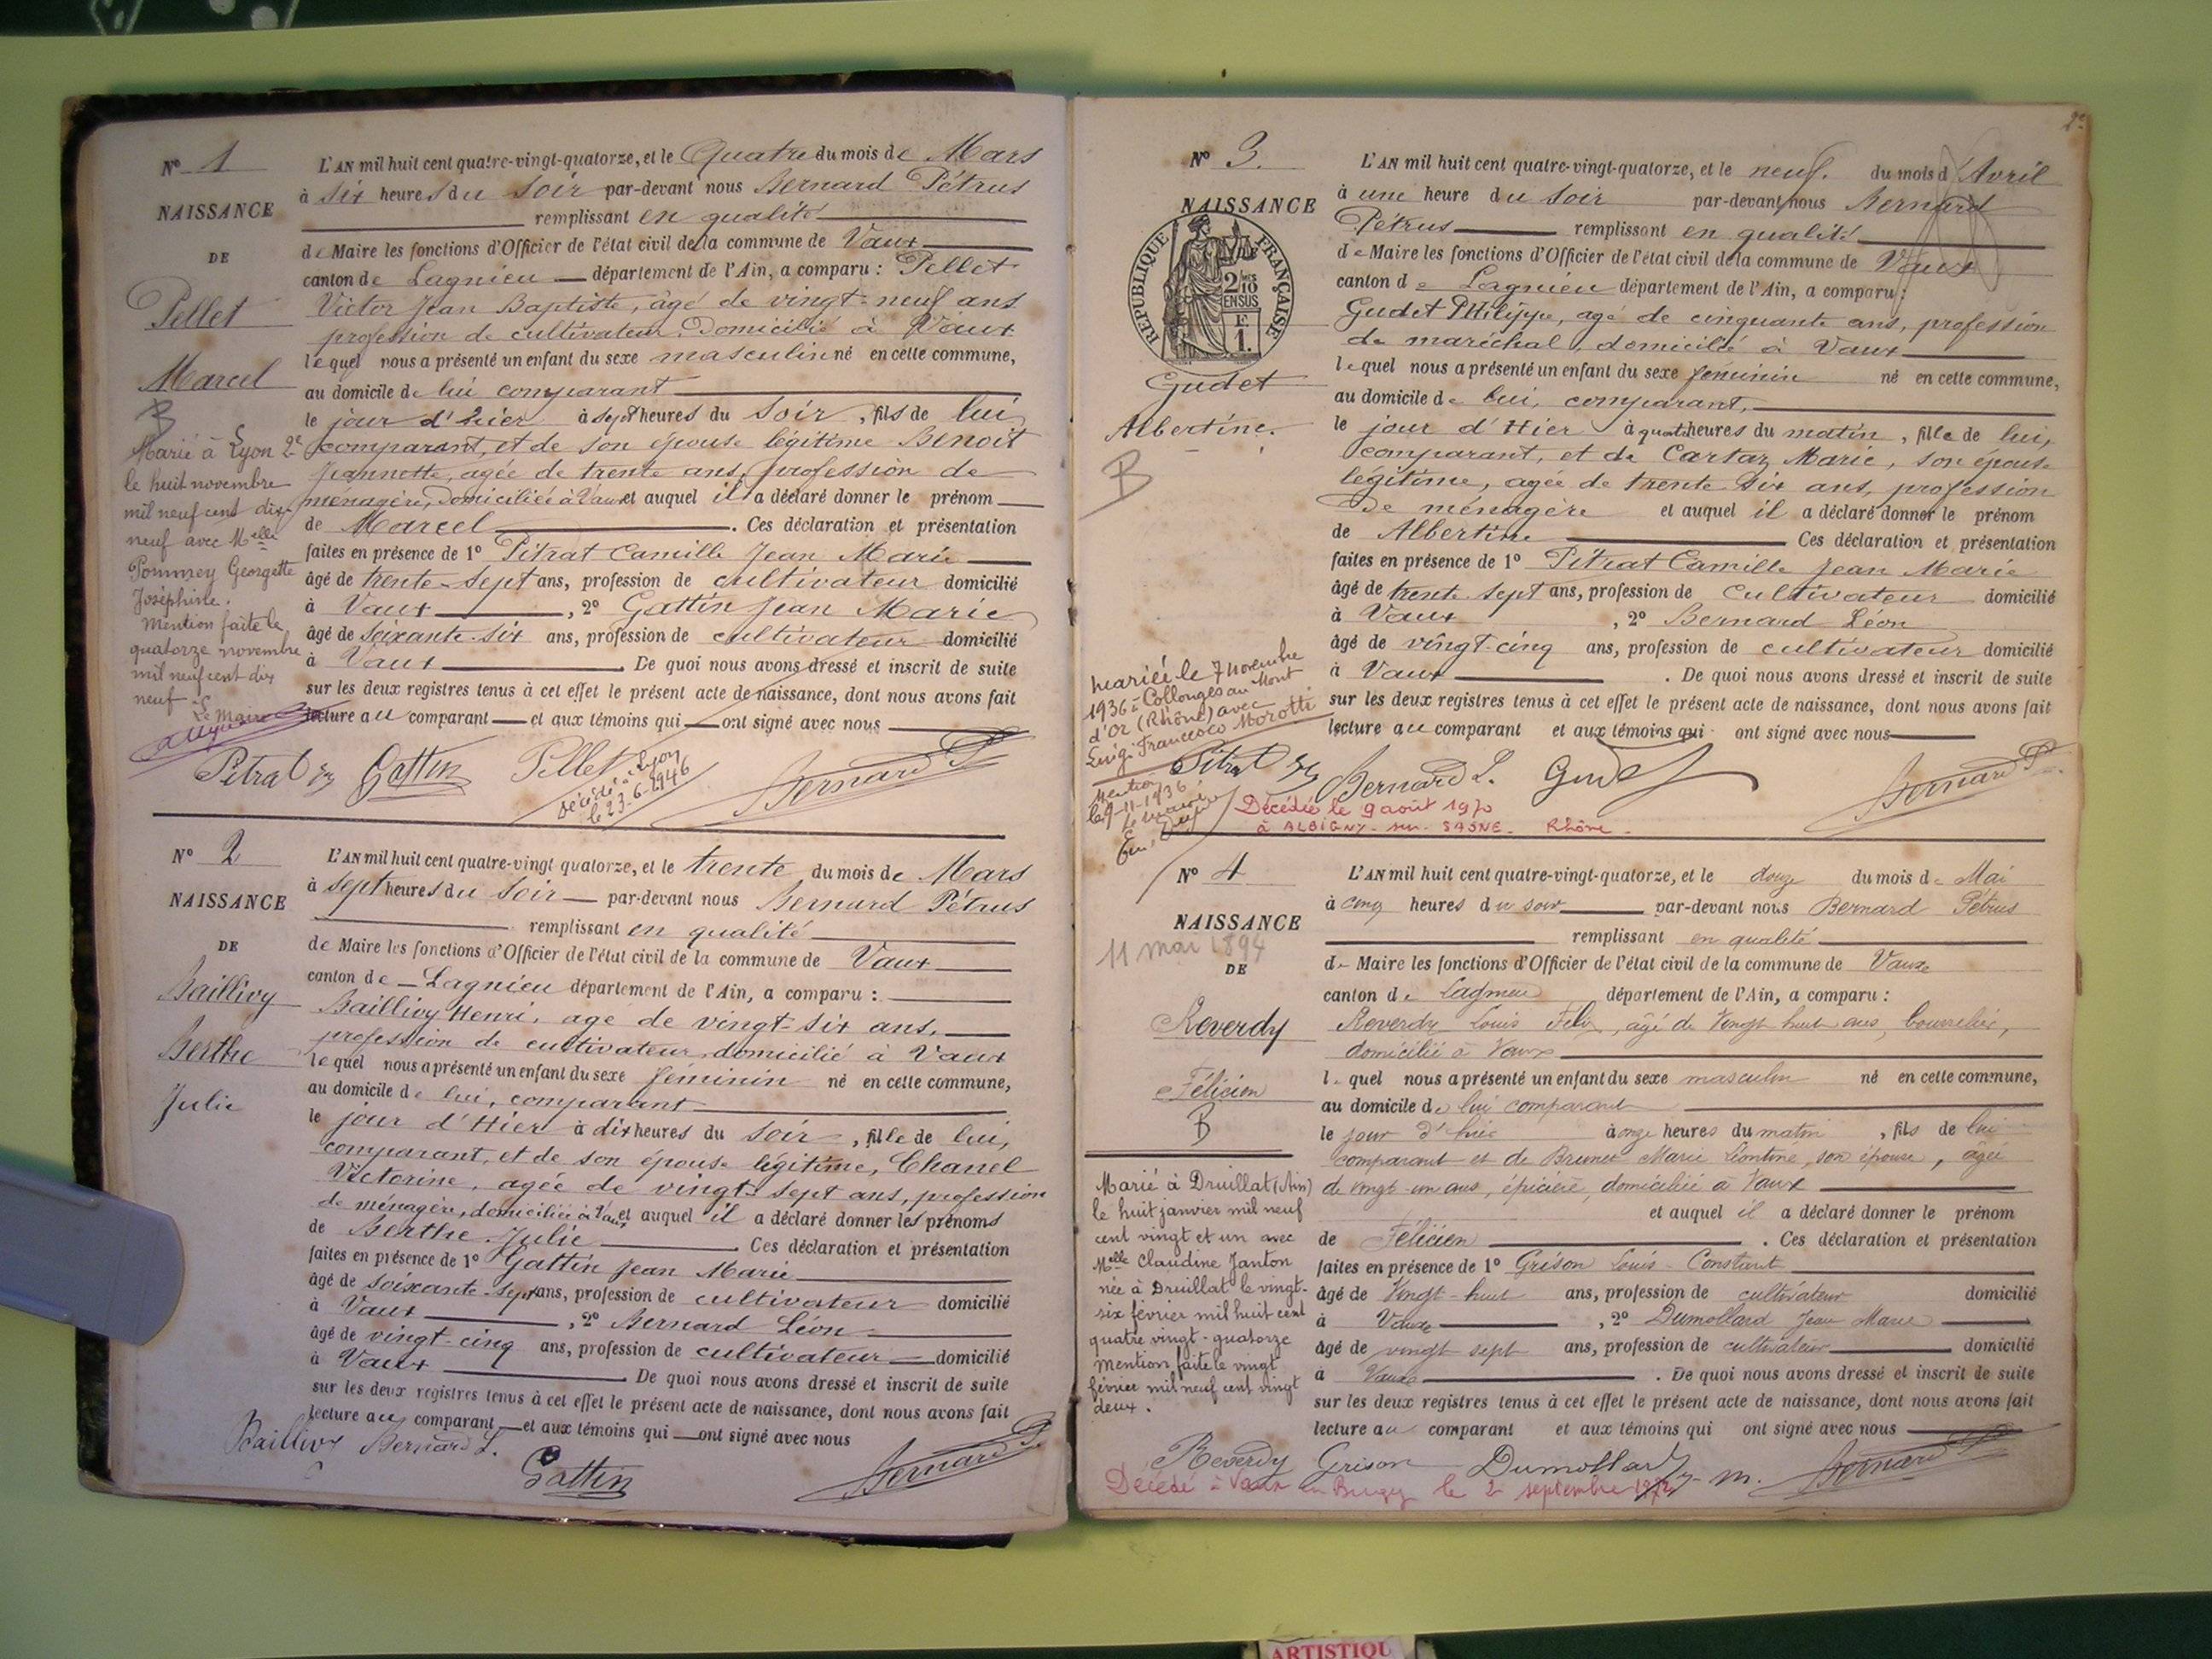 Nº 1
NAISSANCE
DE
Pellet
Marcel
B
Marié à Lyon 2e
le huit novembre
mil neuf cent dix-
neuf avec Melle
Pommey Georgette
Joséphine.
Mention faite le
quatorze novembre
mil neuf cent dix
neuf
Le Maire
L'AN mil huit cent quatre-vingt-quatorze, et le Quatre du mois de Mars
à six heures du soir par-devant nous Bernard Pétrus
remplissant en qualité
de Maire les fonctions d'Officier de l'état civil de la commune de Vaux
canton de Lagnieu département de l'Ain, a comparu : Pellet
Victor Jean Baptiste, âgé de vingt-neuf ans
profession de cultivateur Domicilié à Vaux
lequel nous a présenté un enfant du sexe masculin né en cette commune,
au domicile de lui comparant
le jour d'hier à sept heures du soir, fils de lui
comparant, et de son épouse légitime Benoit
Jeannette, agée de trente ans, profession de
ménagère, domiciliée à Vaux et auquel il a déclaré donner le prénom
de Marcel . Ces déclaration et présentation
faites en présence de 1º Pitrat Camille Jean Marie
âgé de trente-sept ans, profession de cultivateur domicilié
à Vaux , 2º Gattin Jean Marie
âgé de soixante-six ans, profession de cultivateur domicilié
à Vaux . De quoi nous avons dressé et inscrit de suite
sur les deux registres tenus à cet effet le présent acte de naissance, dont nous avons fait
lecture au comparant et aux témoins qui ont signé avec nous
Pitrat Gattin Pellet Bernard P.
Décédé à Lyon
le 23-6-1946
Nº 2
NAISSANCE
DE
Baillivy
Berthe
Julie
L'AN mil huit cent quatre-vingt-quatorze, et le trente du mois de Mars
à sept heures du soir par-devant nous Bernard Pétrus
remplissant en qualité
de Maire les fonctions d'Officier de l'état civil de la commune de Vaux
canton de Lagnieu département de l'Ain, a comparu :
Baillivy Henri, agé de vingt-six ans,
profession de cultivateur domicilié à Vaux
lequel nous a présenté un enfant du sexe féminin né en cette commune,
au domicile de lui, comparant
le jour d'Hier à dix heures du soir, fille de lui,
comparant, et de son épouse légitime, Chanel
Victorine, agée de vingt-sept ans, profession
de ménagère, domiciliée à Vaux et auquel il a déclaré donner les prénoms
de Berthe Julie . Ces déclaration et présentation
faites en présence de 1º Gattin Jean Marie
âgé de soixante-sept ans, profession de cultivateur domicilié
à Vaux , 2º Bernard Léon
âgé de vingt-cinq ans, profession de cultivateur domicilié
à Vaux . De quoi nous avons dressé et inscrit de suite
sur les deux registres tenus à cet effet le présent acte de naissance, dont nous avons fait
lecture au comparant et aux témoins qui ont signé avec nous
Baillivy Bernard L. Gattin Bernard P.
2e
Nº 3.
NAISSANCE
RÉPUBLIQUE FRANÇAISE
2/10 EN SUS
F.
1.
Gudet
Albertine.
B
mariée le 7 novembre
1936 à Collonges au Mont
d'Or (Rhône) avec
Luigi Francesco Morotti
Mention
le 9-11-1936
L'AN mil huit cent quatre-vingt-quatorze, et le neuf. du mois d'Avril
à une heure du soir par-devant nous Bernard
Pétrus remplissant en qualité
de Maire les fonctions d'Officier de l'état civil de la commune de Vaux
canton de Lagnieu département de l'Ain, a comparu :
Gudet Philippe, agé de cinquante ans, profession
de maréchal, domicilié à Vaux
lequel nous a présenté un enfant du sexe feminin né en cette commune,
au domicile de lui, comparant,
le jour d'Hier à quatre heures du matin, fille de lui,
comparant, et de Cartaz Marie, son épouse
légitime, agée de trente six ans, profession
De ménagère et auquel il a déclaré donner le prénom
de Albertine Ces déclaration et présentation
faites en présence de 1º Pitrat Camille Jean Marie
âgé de trente sept ans, profession de Cultivateur domicilié
à Vaux , 2º Bernard Léon
âgé de vingt-cinq ans, profession de cultivateur domicilié
à Vaux . De quoi nous avons dressé et inscrit de suite
sur les deux registres tenus à cet effet le présent acte de naissance, dont nous avons fait
lecture au comparant et aux témoins qui ont signé avec nous
Pitrat Bernard L. Gudet Bernard P.
Décédée le 9 août 1970
à ALBIGNY-sur-SAÔNE - Rhône -
Nº 4
NAISSANCE
11 mai 1894
DE
Reverdy
Félicien
B
Marié à Druillat (Ain)
le huit janvier mil neuf
cent vingt et un avec
Melle Claudine Janton
née à Druillat le vingt-
six février mil huit cent
quatre vingt-quatorze
Mention faite le vingt
février mil neuf cent vingt
deux.
L'AN mil huit cent quatre-vingt-quatorze, et le douze du mois de Mai
à cinq heures du soir par-devant nous Bernard Pétrus
remplissant en qualité
de Maire les fonctions d'Officier de l'état civil de la commune de Vaux
canton de Lagnieu département de l'Ain, a comparu :
Reverdy Louis Félix, âgé de vingt huit ans, bourrelier,
domicilié à Vaux
lequel nous a présenté un enfant du sexe masculin né en cette commune,
au domicile de lui comparant
le jour d'hier à onze heures du matin, fils de lui
comparant et de Brunet Marie Léontine, son épouse, âgée
de vingt-un ans, épicière, domiciliée à Vaux
et auquel il a déclaré donner le prénom
de Félicien . Ces déclaration et présentation
faites en présence de 1º Grison Louis-Constant
âgé de Vingt-huit ans, profession de cultivateur domicilié
à Vaux , 2º Dumollard Jean Marie
âgé de vingt sept ans, profession de cultivateur domicilié
à Vaux . De quoi nous avons dressé et inscrit de suite
sur les deux registres tenus à cet effet le présent acte de naissance, dont nous avons fait
lecture au comparant et aux témoins qui ont signé avec nous
Reverdy Grison Dumollard J-M. Bernard P.
Décédé à Vaux en Bugey le 2 septembre
ARTISTIQU